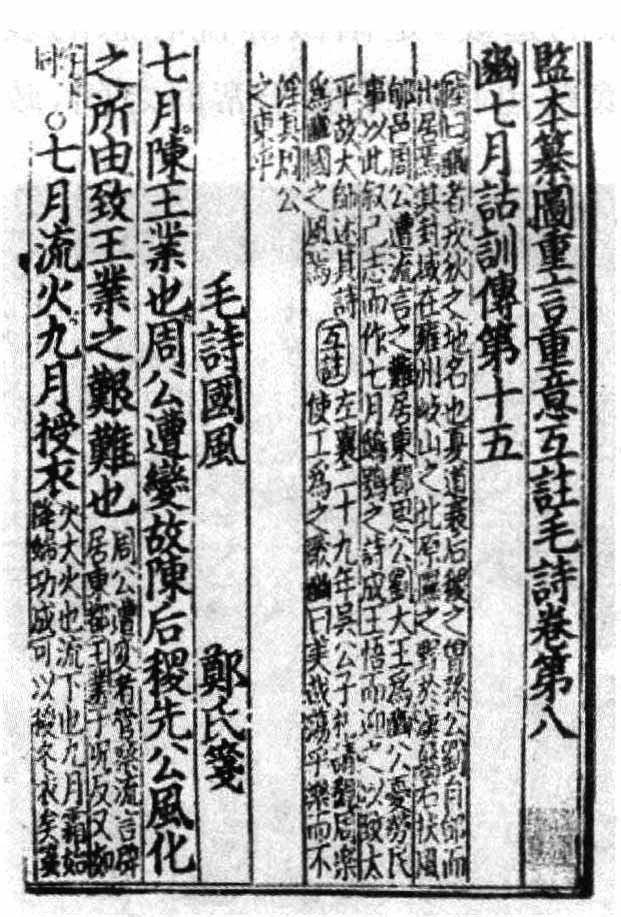 監本纂圖重言重意互註毛詩卷第八
豳七月詁訓傳第十五
陸曰豳者戎狄之地名也夏道衰后稷之曾孫公劉自邰而
出居焉其封域在雍州岐山之北原隰之野於漢屬右扶風
郇邑周公遭流言之難居東都思公劉大王爲豳公憂勞民
事以此敘己志而作七月鴟鴞之詩成王悟而迎之以致太
平故大師述其詩
爲豳國之風焉
互註
左襄二十九年吳公子札請觀周樂
使工爲之歌豳曰美哉蕩乎樂而不
淫其周公
之東乎
毛詩國風 鄭氏箋
七月陳王業也周公遭變故陳后稷先公風化
之所由致王業之艱難也
周公遭變者管蔡流言辟
居東都王業于况反又如
字
同○七月流火九月授衣
火大火也流下也九月霜始
降婦功成可以授冬衣矣箋